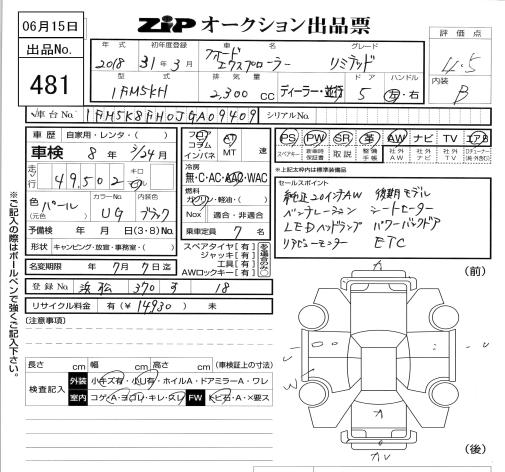 06月15日
ZIPオークション出品票
評価点
4.5
内装
B
出品No.
481
年式
初年度登録
車名
グレード
2018
31年3月
フォード
エクスプローラー
リミテッド
型式
排気量
ドア
ハンドル
1FM5K8H
2,300cc
ディーラー・並行
5
左・右
車台No.
1FM5K8FH0JGA09409
シリアルNo.
車歴
自家用・レンタ・( )
車検
8年3/24月
走行
49,502
キロ
色
パール
(元色 )
カラーNo.
UG
内装色
ブラック
予備検
年 月 日(3・8)No.
形状
キャンピング・放宣・事務室・( )
名変期限
年7月7日迄
登録No.
浜松
370
す
18
リサイクル料金
有(¥14930)
未
フロア
コラム
インパネ
AT
MT
速
冷房
無・C・AC・AAC・WAC
燃料
ガソリン・軽油・( )
Nox
適合・非適合
乗車定員
7名
スペアタイヤ[有]
ジャッキ[有]
工具[有]
AWロックキー[有]
PS PW SR 革 AW ナビ TV エアB
スペアキー
新車時保証書
取説
整備手帳
社外AW
社外ナビ
社外TV
※上記太枠内は標準装備品
セールスポイント
純正20インチAW 後期モデル
ベンチレーション シートヒーター
LEDヘッドランプ パワーバックドア
リアビューモニター ETC
※ご記入の際はボールペンで強くご記入下さい。
(注意事項)
長さ cm 幅 cm 高さ cm (車検証上の寸法)
検査記入
外装
小キズ有・小U有・ホイルA・ドアミラーA・ワレ
室内
コゲ・A・ヨゴレ・キレ・スレ
FW
トビ石・A・×要ス
(前)
A
U
U
W
A
A U
(後)